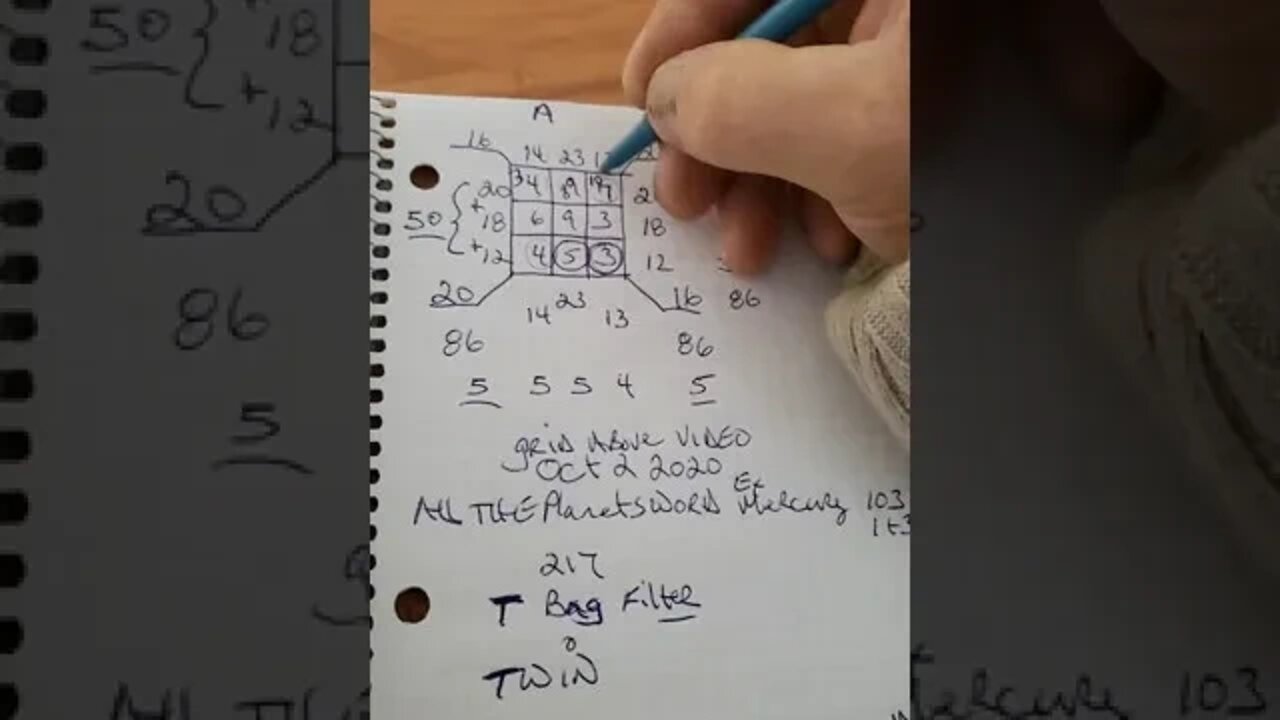 A
16
14 23
20 34 89 197
50 { + 18 6 9 3 18
+ 12 4 5 3 12
20 14 23 13 16 86
86 86
5 5 5 4 5
grid ABOVE VIDEO
Oct 2 2020
Ex
All THE Planets WORD Mercury 103
1+3
217
T Bag Filter
TWIN